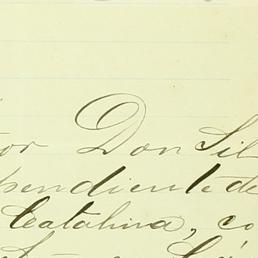 tor Don Sil
pendiente de
Catalina, co